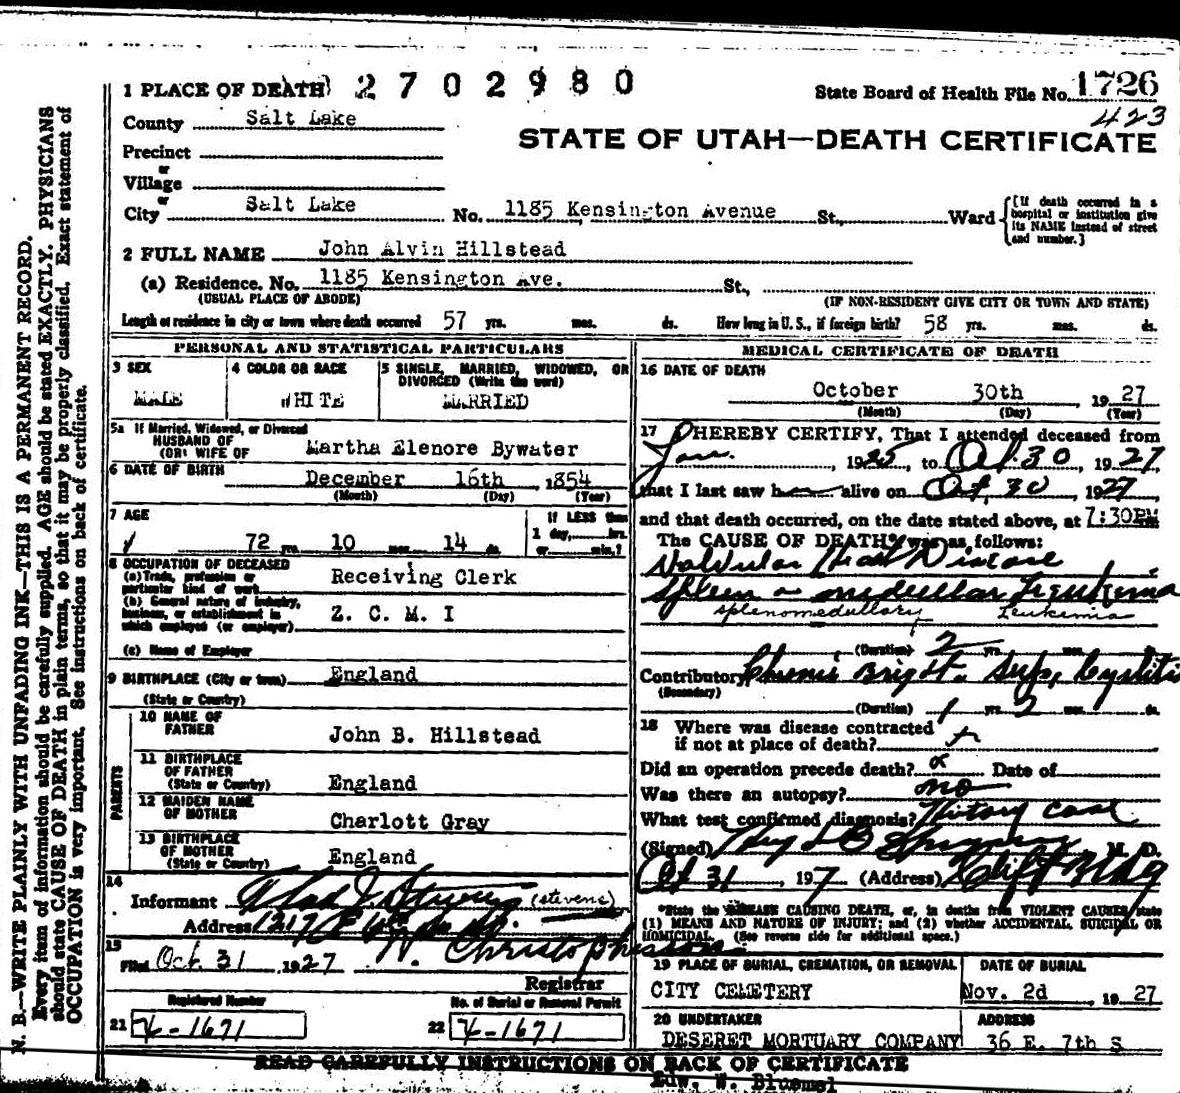 N. B.—WRITE PLAINLY WITH UNFADING INK—THIS IS A PERMANENT RECORD.
Every item of information should be carefully supplied. AGE should be stated EXACTLY. PHYSICIANS
should state CAUSE OF DEATH in plain terms, so that it may be properly classified. Exact statement of
OCCUPATION is very important. See instructions on back of certificate.
1 PLACE OF DEATH 2702980
State Board of Health File No. 1726
423
County Salt Lake
STATE OF UTAH—DEATH CERTIFICATE
Precinct
or
Village
or
City Salt Lake No. 1185 Kensington Avenue St., Ward
{If death occurred in a
hospital or institution give
its NAME instead of street
and number.}
2 FULL NAME John Alvin Hillstead
(a) Residence. No. 1185 Kensington Ave. St.,
(USUAL PLACE OF ABODE) (IF NON-RESIDENT GIVE CITY OR TOWN AND STATE)
Length of residence in city or town where death occurred 57 yrs. mos. ds. How long in U. S., if foreign birth? 58 yrs. mos. ds.
PERSONAL AND STATISTICAL PARTICULARS
3 SEX
MALE
4 COLOR OR RACE
WHITE
5 SINGLE, MARRIED, WIDOWED, OR
DIVORCED (Write the word)
MARRIED
5a If Married, Widowed, or Divorced
HUSBAND OF
(OR) WIFE OF Martha Elenore Bywater
6 DATE OF BIRTH December 16th, 1854
(Month) (Day) (Year)
7 AGE
72 yrs. 10 mos. 14 ds.
If LESS than
1 day, hrs.
or min.?
8 OCCUPATION OF DECEASED
(a) Trade, profession or
particular kind of work Receiving Clerk
(b) General nature of industry,
business, or establishment in
which employed (or employer) Z. C. M. I
(c) Name of Employer
9 BIRTHPLACE (City or town) England
(State or Country)
PARENTS
10 NAME OF
FATHER John B. Hillstead
11 BIRTHPLACE
OF FATHER
(State or Country) England
12 MAIDEN NAME
OF MOTHER Charlott Gray
13 BIRTHPLACE
OF MOTHER
(State or Country) England
14
Informant (stevens)
Address 1217 E 6th
15
Filed Oct. 31, 1927 W. Christopherson
Registrar
Registered Number No. of Burial or Removal Permit
21 X-1671 22 X-1671
MEDICAL CERTIFICATE OF DEATH
16 DATE OF DEATH
October 30th, 1927
(Month) (Day) (Year)
17 I HEREBY CERTIFY, That I attended deceased from
Jan., 1925, to Oct. 30, 1927,
that I last saw h alive on Oct, 30, 1927,
and that death occurred, on the date stated above, at 7:30PM
The CAUSE OF DEATH* was as follows:
Valvular Heart Disease
Spleen medullar Leukemia
splenomedullary Leukimia
(Duration) 2 yrs. mos.
Contributory Chronic Bright. Cystitis
(Secondary)
(Duration) 1 yrs. 2 mos. ds.
18 Where was disease contracted
if not at place of death?
Did an operation precede death? Date of
Was there an autopsy? no
What test confirmed diagnosis? History case
(Signed) M. D.
Oct 31, 1927 (Address) Clift Bldg
*State the DISEASE CAUSING DEATH, or, in deaths from VIOLENT CAUSES, state
(1) MEANS AND NATURE OF INJURY; and (2) whether ACCIDENTAL, SUICIDAL OR
HOMICIDAL. (See reverse side for additional space.)
19 PLACE OF BURIAL, CREMATION, OR REMOVAL
CITY CEMETERY
DATE OF BURIAL
Nov. 2d, 1927
20 UNDERTAKER
DESERET MORTUARY COMPANY
ADDRESS
36 E. 7th S
READ CAREFULLY INSTRUCTIONS ON BACK OF CERTIFICATE
Edw. W. Bluemel